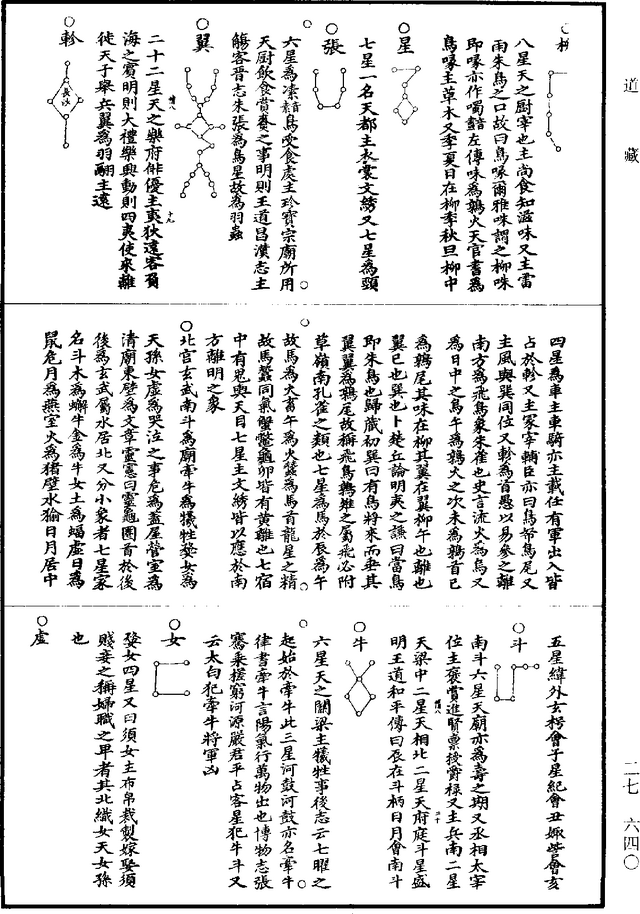 道藏
柳
八星天之厨宰也主尚食和滋味又主雷
雨朱鳥之口故曰鳥喙爾雅咮謂之柳咮
即喙亦作噣黯左傳咮為鶉火天官書為
鳥喙主草木又季夏日在柳季秋旦柳中
星
七星一名天都主衣裳文綉又七星為頸
張
六星為嗉黯鳥受食處主珍寶宗廟所用
天厨飲食賞賚之事明則王道昌漢志主
觴客晉志朱張為鳥星故為羽蟲
翼
二十二星天之樂府俳優主夷狄遠客負
海之賓明則大禮樂興動則四夷使來離
徙天子舉兵翼為羽翮主遠
軫
長沙
四星為車主車騎亦主載任有軍出入皆
占於軫又主冢宰輔臣亦曰鳥帑鳥尾又
主風與巽同位又軫為首愚以易參之離
南方為飛鳥象朱雀也史言流火為鳥又
為日中之鳥午為鶉火之次未為鶉首巳
為鶉尾其咮在柳其翼在翼柳午也離也
翼巳也巽也卜楚丘論明夷之謙曰當鳥
即朱鳥也歸藏初巽曰有鳥將來而垂其
翼翼為鶉尾故稱飛鳥鶉雉之屬飛必附
草嶺南孔雀之類也七星為馬於辰為午
故馬為火畜午為火蠶為馬首龍星之精
故馬蠶同氣蟹鼈龜卯皆有黃離也七宿
中有鬼輿天目七星主文綉皆以應於南
方離明之象
北宮玄武南斗為廟牽牛為犧牲婺女為
天孫女虛為哭泣之事危為蓋屋營室為
清廟東壁為文章靈憲曰靈龜圈首於後
後為玄武屬水居北又分小象者七星家
名斗木為蠏牛金為牛女土為蝠虛日為
鼠危月為燕室火為豬壁水㺄日月居中
五星緯外玄枵會子星紀會丑娵訾會亥
斗
南斗六星天廟亦為壽之期又丞相太宰
位主褒賞進賢稟授爵祿又主兵南二星
天梁中二星天相北二星天府庭斗星盛
明王道和平傳曰辰在斗柄日月會南斗
牛
六星天之關梁主犧牲事後志云七曜之
起始於牽牛此三星河鼓河鼓亦名牽牛
律書牽牛言陽氣行萬物出也博物志張
騫乘槎窮河源嚴君平占客星犯牛斗又
云太白犯牽牛將軍凶
女
婺女四星又曰須女主布帛裁製嫁娶須
賤妾之稱婦職之卑者其北織女天女孫
也
虛
二七 六四〇